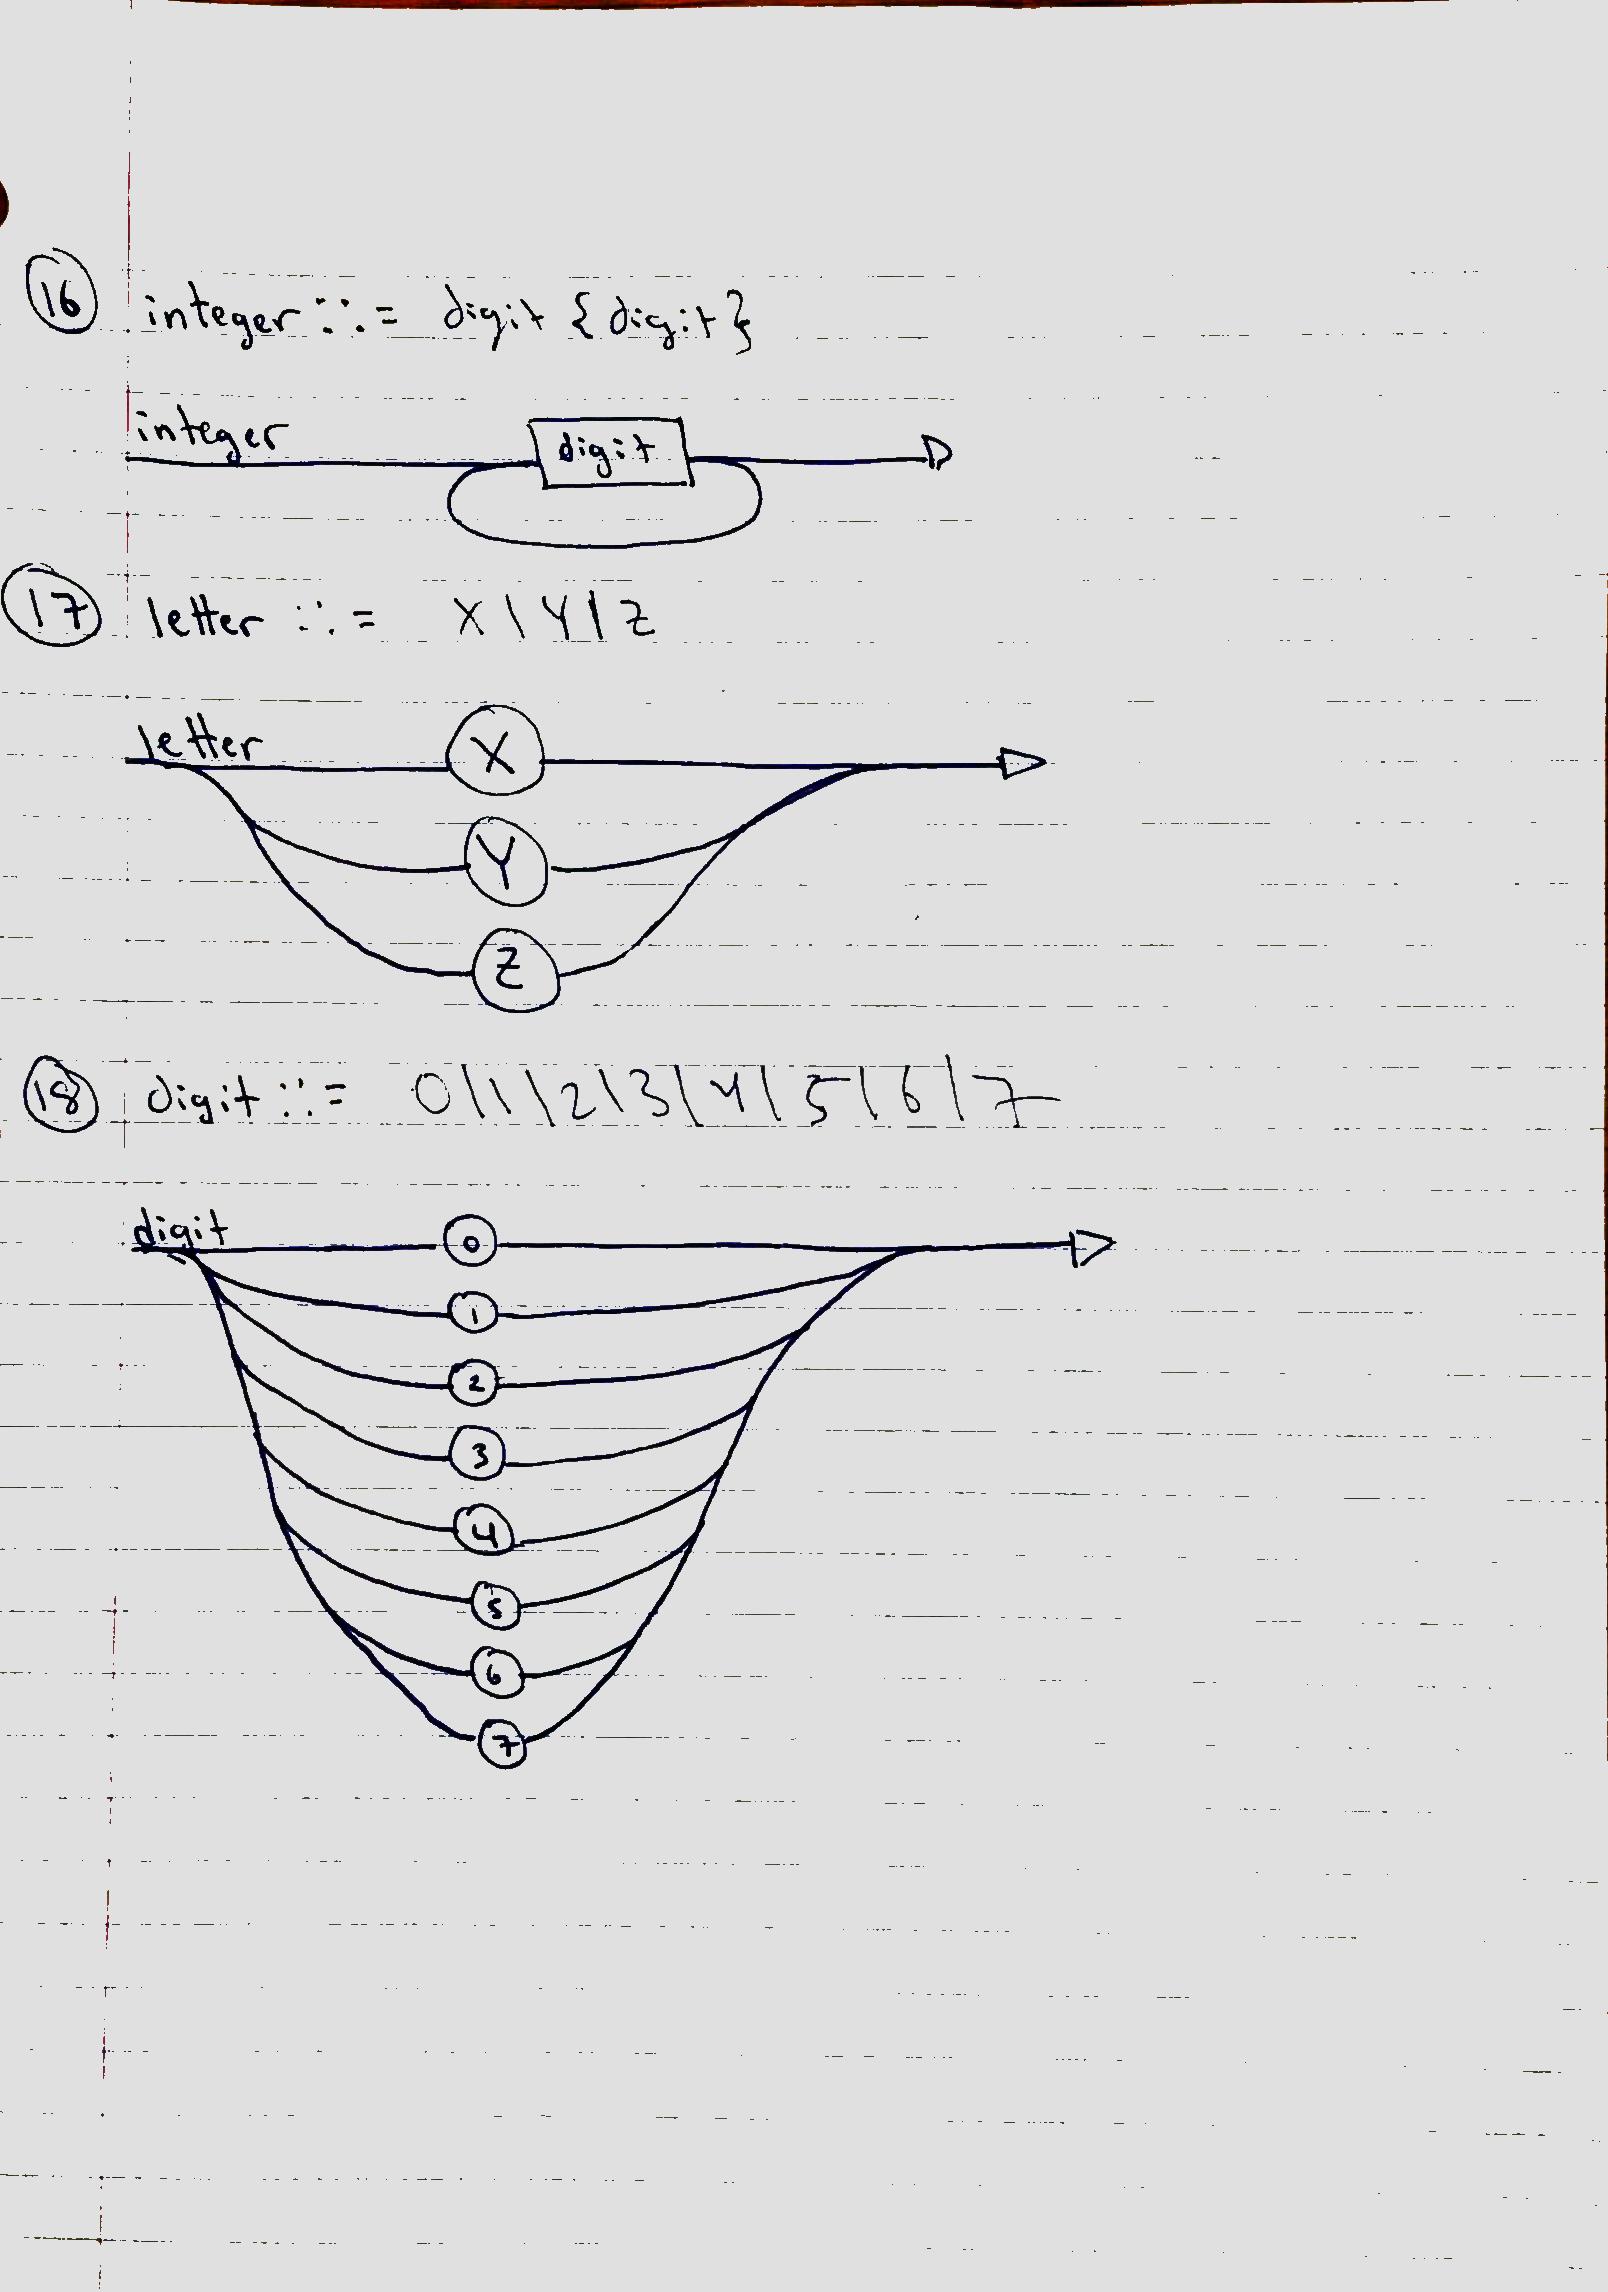 16 integer ::= digit {digit}
integer
digit
17 letter ::= X | Y | Z
letter
X
Y
Z
18 digit ::= 0 | 1 | 2 | 3 | 4 | 5 | 6 | 7
digit
0
1
2
3
4
5
6
7